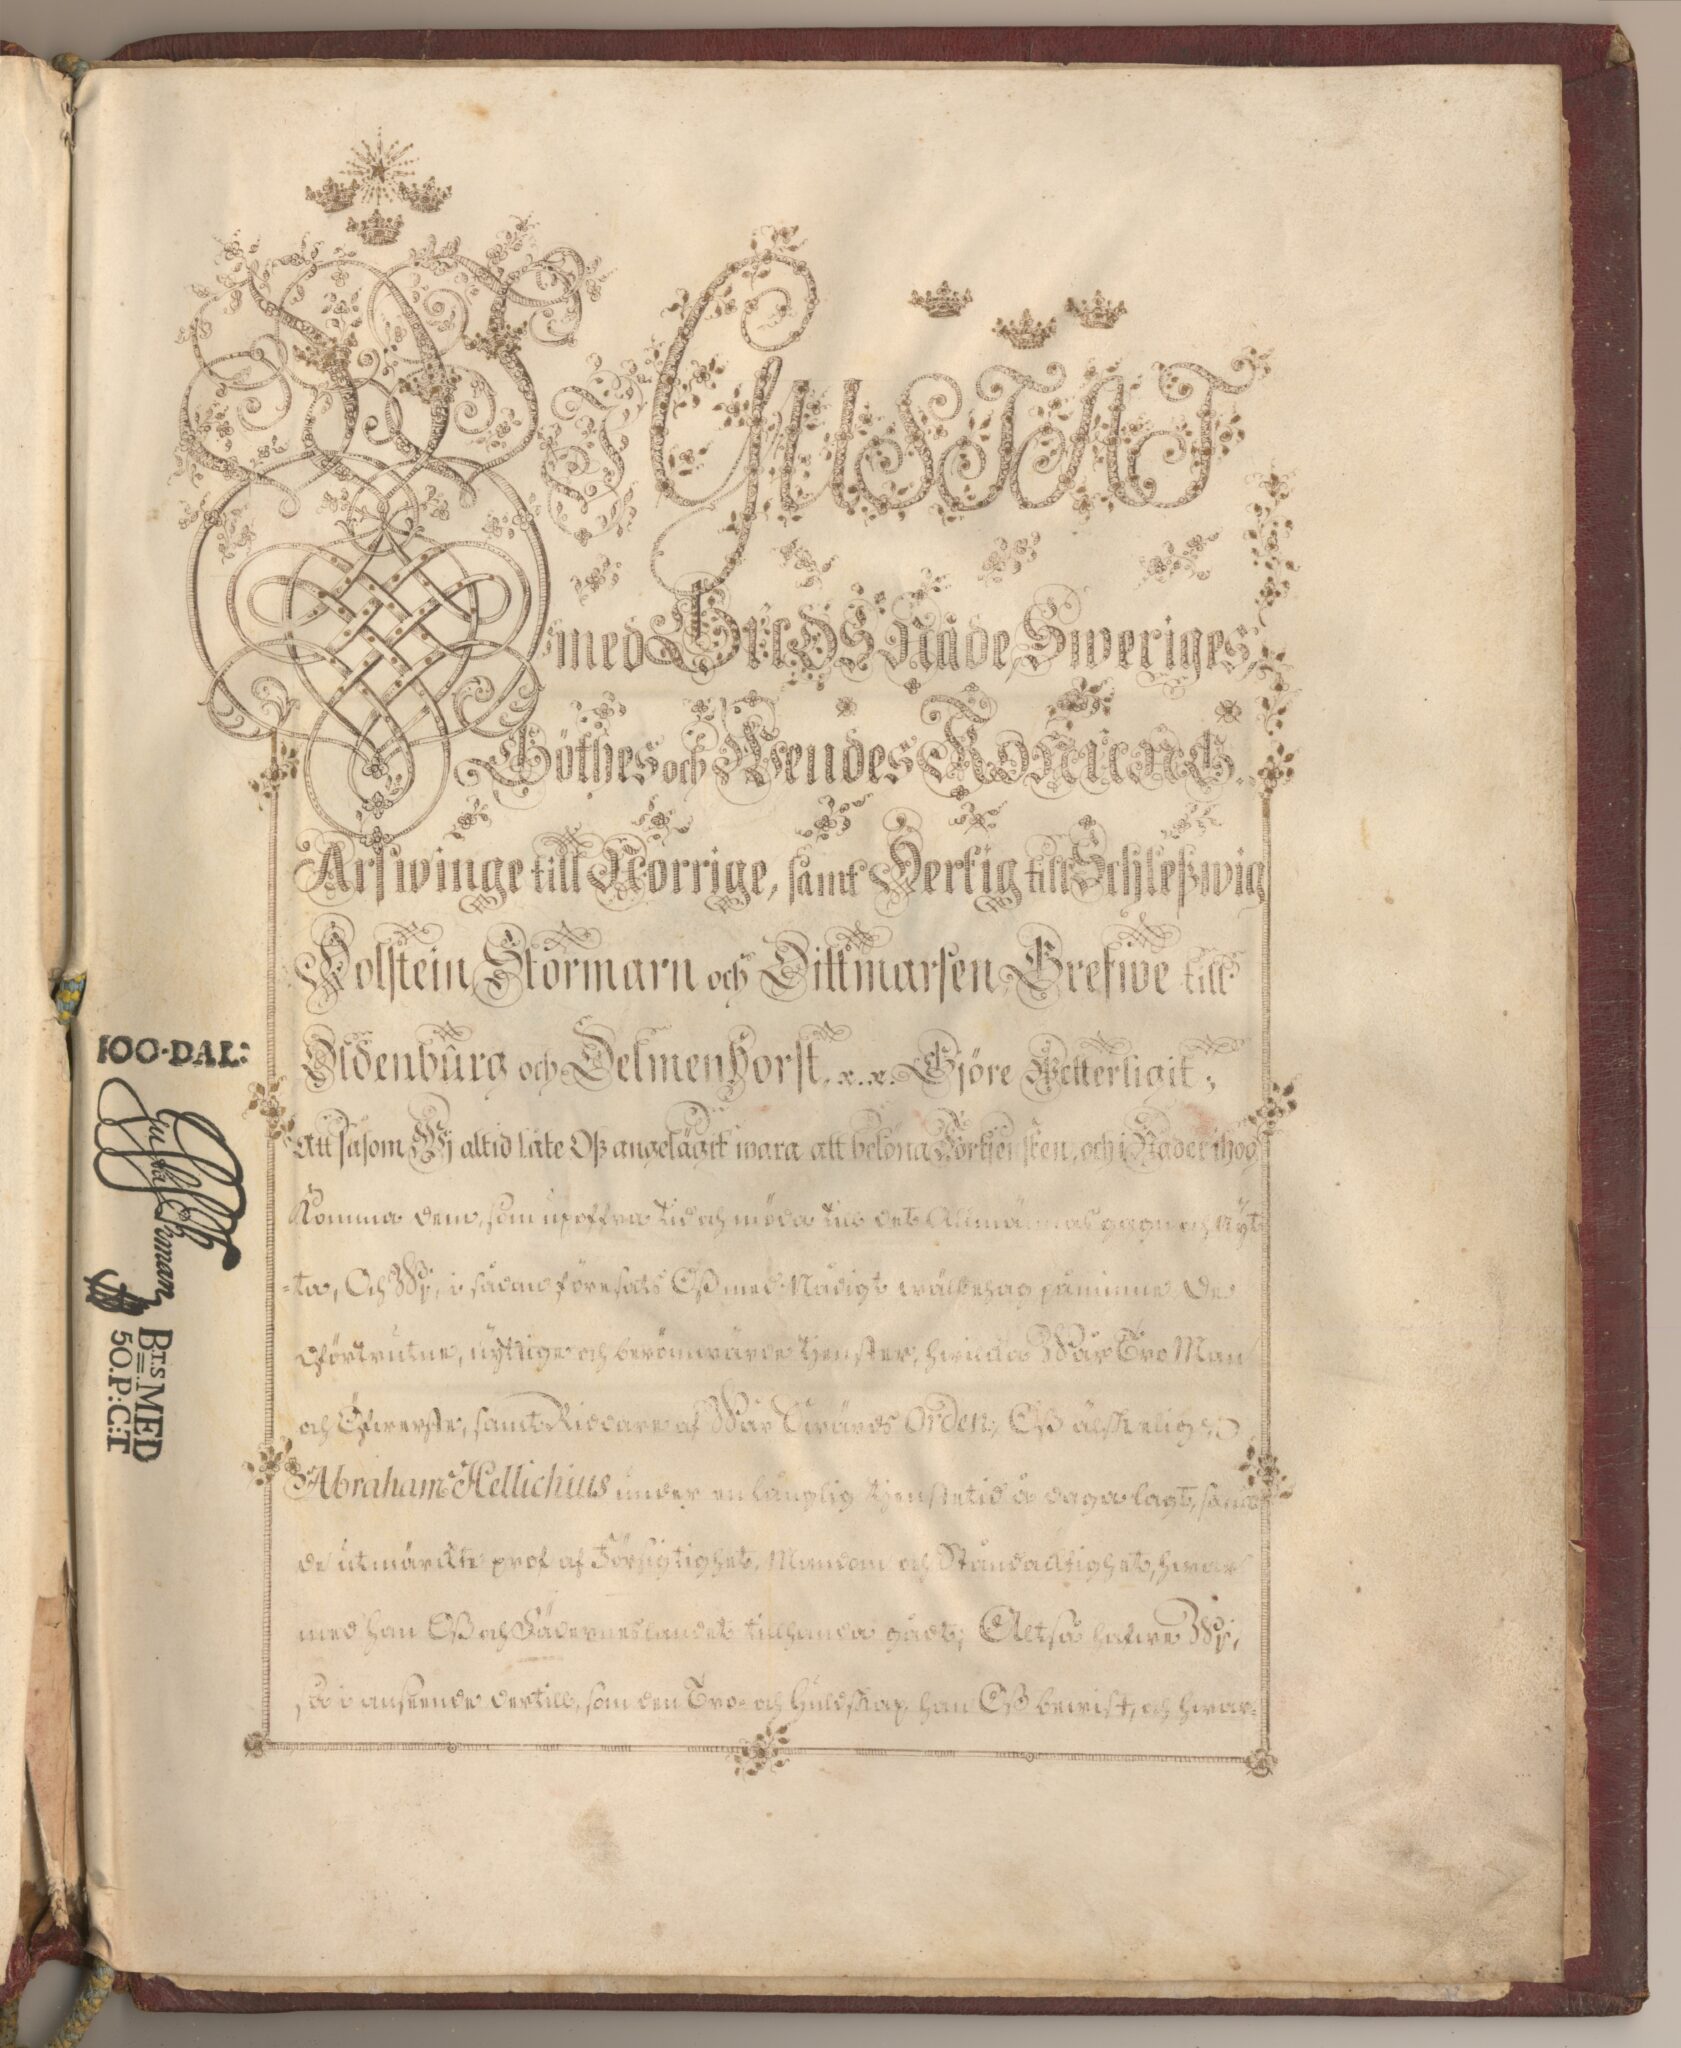 Wi GUSTAF
med GUDS Nåde, Sweriges,
Göthes och Wendes KONUNG..
Arfwinge till Norrige, samt Hertig till Schleßwig
Holstein, Stormarn och Dittmarsen, Grefwe till
Oldenburg och Delmenhorst. &. &. Gjöre Wetterligit;
att såsom Wij altid låte Oß angelägit wara att belöna Förtjensten, och i Nåder ihog
komma dem, som upoffra tid och möda till det Allmännas gagn och nyt-
-ta, Och Wij, i sådan föresats Oß med Nådigt wälbehag påminne de
oförtrutne, nyttige och berömwärde tjenster, hwilcka Wår Tro Man
och Öfwerste, samt Riddare af Wår Swärds Orden, Oß älskelig
Abraham Hellichius under en långlig tjenstetid å daga lagt, samt
de utmärckte prof af Försigtighet, Mandom och Ståndacktighet, hwar
med han Oß och Fäderneslandet tillhanda gådt; Altså hafwe Wij,
så i anseende dertill, som den Tro- och Huldskap, han Oß bewist, och hwar-
100·DAL:
Gustaf
BTS MED
50.P:C:T